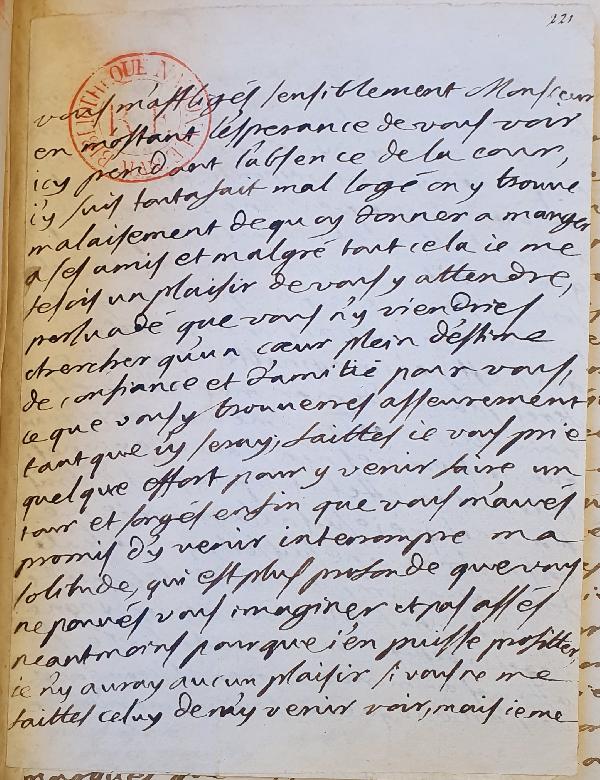 221
BIBLIOTHEQUE
vous m'affligés sensiblement Monsieur
en m'ostant l'esperance de vous voir
icy pendant l'absence de la cour,
i'y suis toutafait mal logé on y trouue
malaisement dequoy donner a manger
a ses amis et malgré tout cela ie me
fesois un plaisir de vous y attendre,
persuadé que vous n'y viendries
chercher qu'un cœur plein d'estime
de confiance et d'amitié pour vous,
ce que vous y trouuerres asseurement
tant que i'y seray, faittes ie vous prie
quelque effort pour y venir faire un
tour et songés enfin que vous m'aués
promis d'y venir interrompre ma
solitude, qui est plus profonde que vous
ne pouués vous imaginer et pas assés
neantmoins pour que i'en puisse profitter,
ie n'y auray aucun plaisir si vous ne me
faittes celuy de m'y venir voir, mais ie me